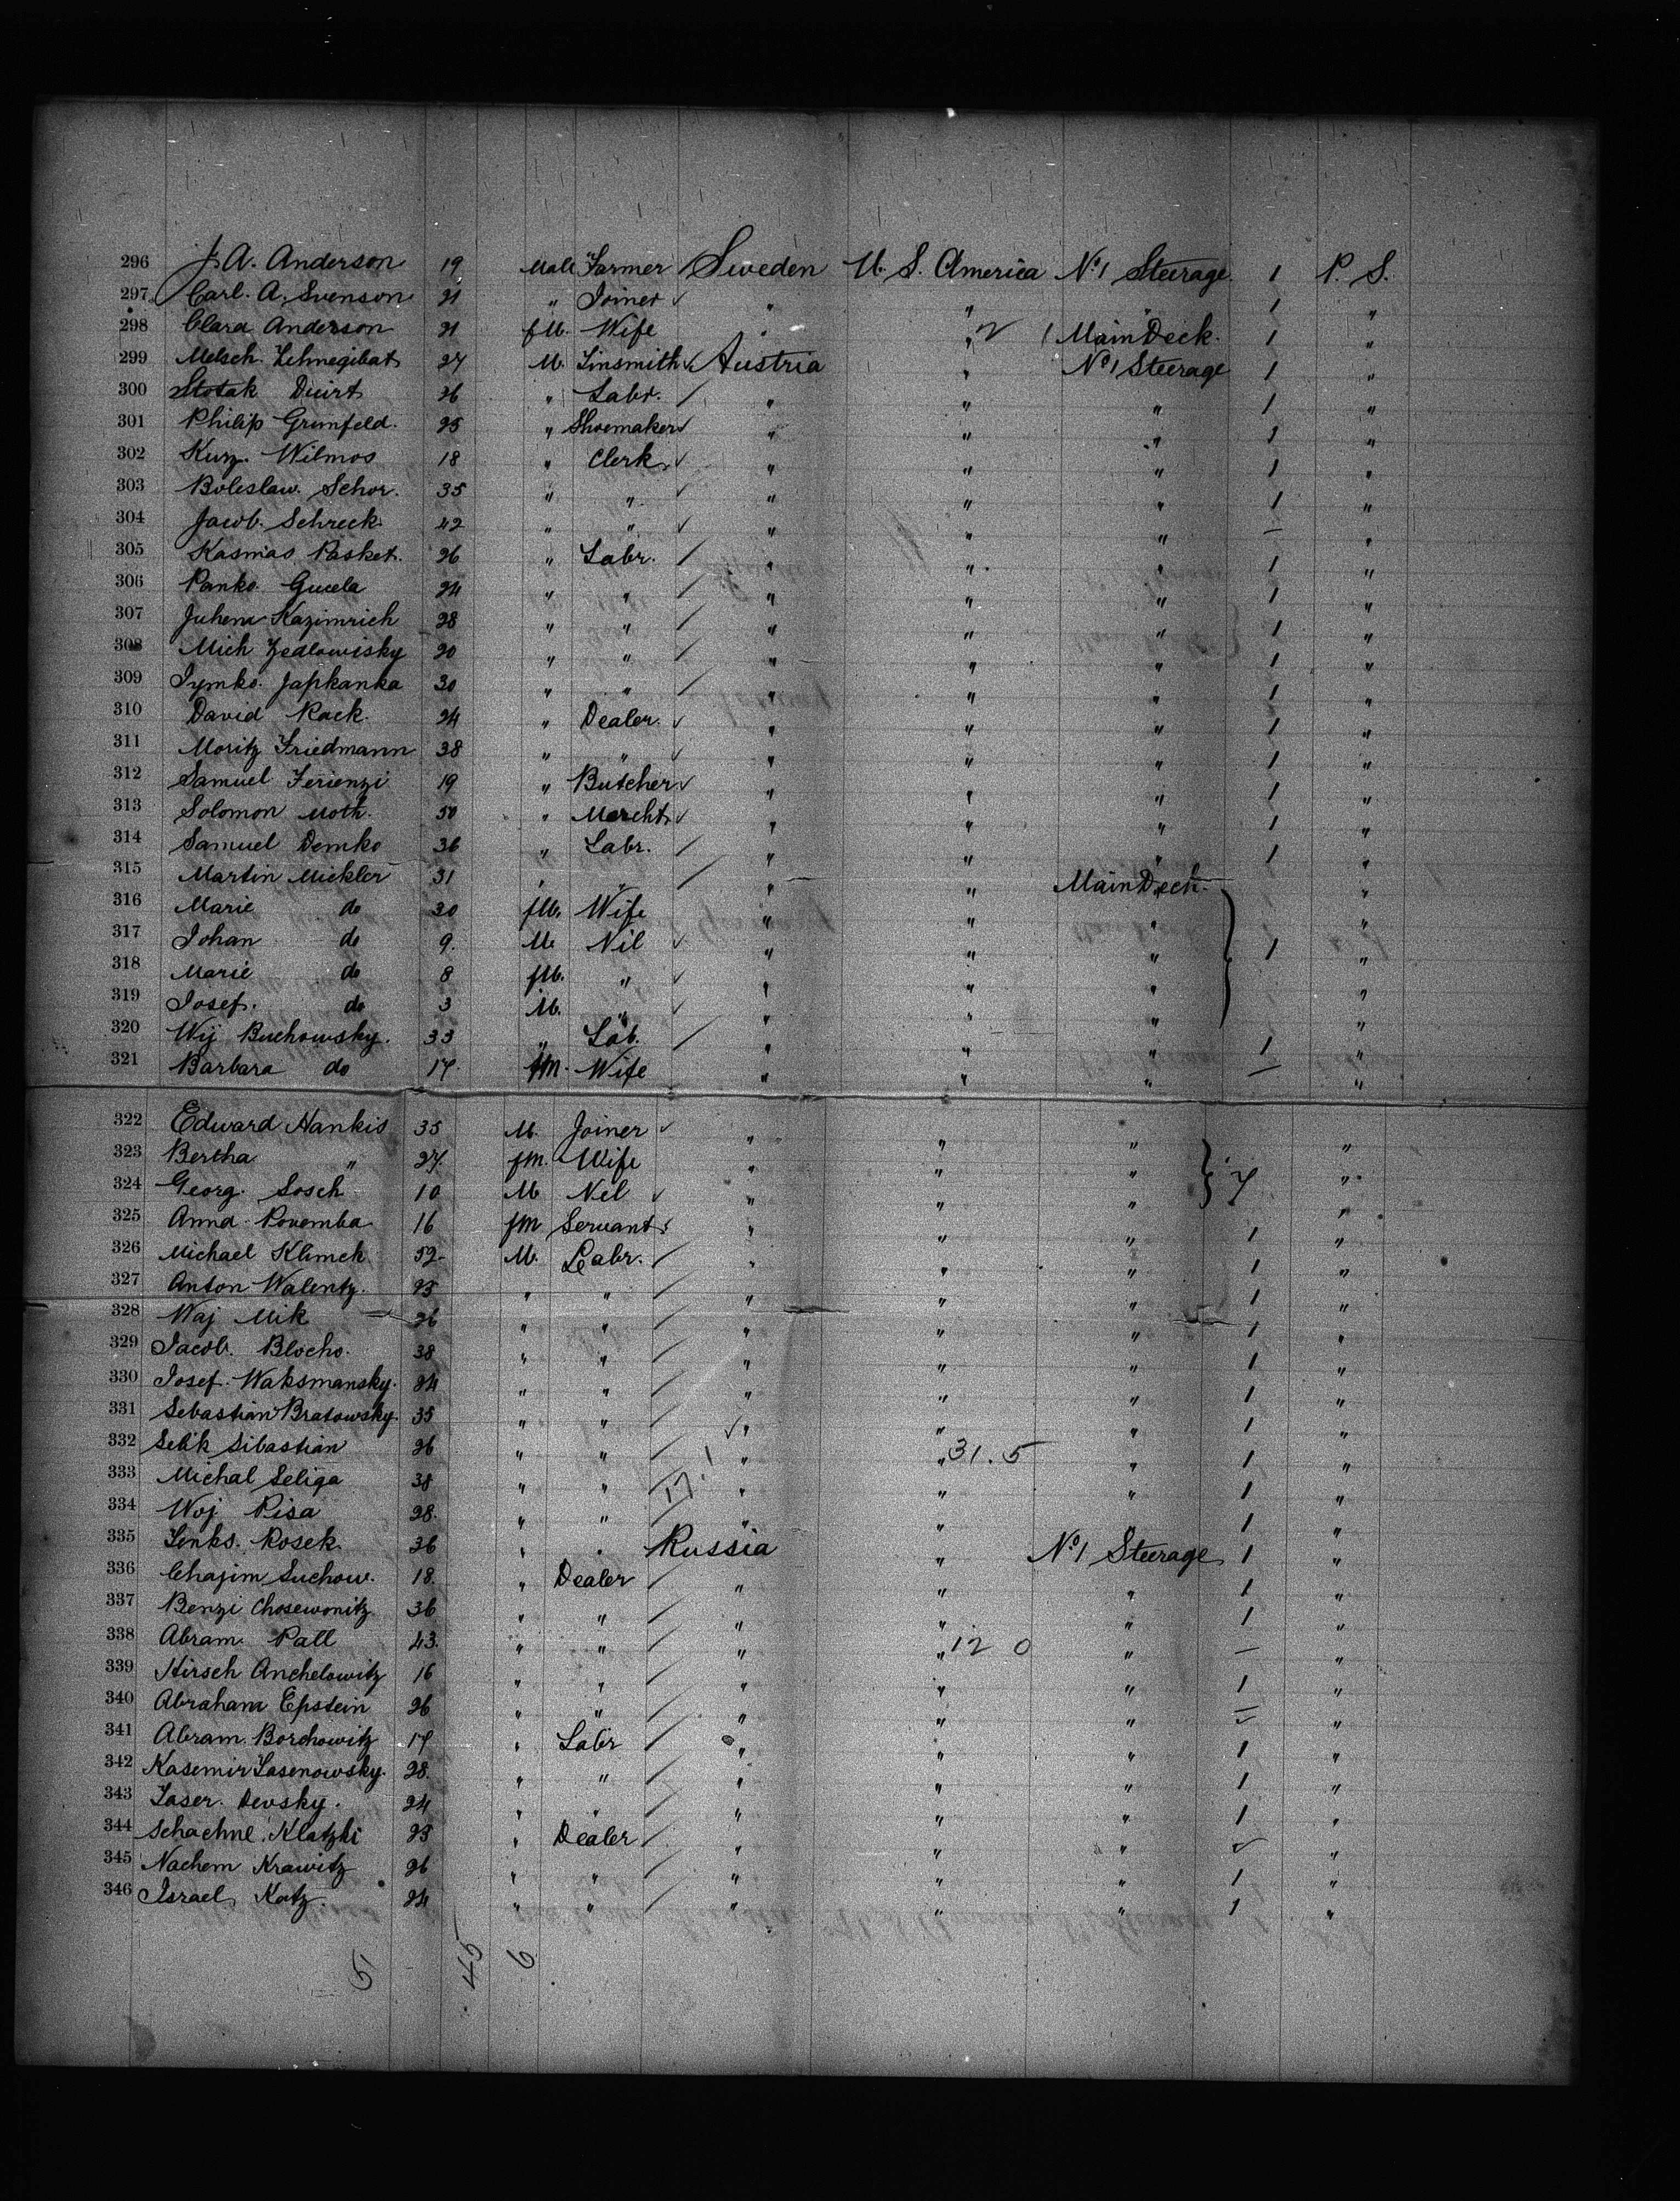 296 J. A. Anderson 19 Male Farmer Sweden U. S. America No 1 Steerage 1 P. S.
297 Carl. A. Svenson 21 " Joiner " " " 1 "
298 Clara Anderson 21 fM. Wife " " 2 1 Main Deck. 1 "
299 Melsch. Zehnegibat 27 M. Tinsmith Austria " No 1 Steerage 1 "
300 Stotak Duirt 26 " Labr. " " " 1 "
301 Philip Grunfeld. 25 " Shoemaker " " " 1 "
302 Kurz. Wilmos 18 " Clerk " " " 1 "
303 Boleslaw. Schor. 35 " " " " " 1 "
304 Jacob. Schreck. 42 " " " " " – "
305 Kasmas Pasket. 26 " Labr. " " " 1 "
306 Panko. Gucela 24 " " " " " 1 "
307 Juhem Kazimrich 28 " " " " " 1 "
308 Mich Zedlowisky 20 " " " " " 1 "
309 Tymko. Japkanka 30 " " " " " 1 "
310 David Rack. 24 " Dealer. " " " 1 "
311 Moritz Friedmann 38 " " " " " 1 "
312 Samuel Ferienzi 19 " Butcher " " " 1 "
313 Solomon Moth. 50 " Mercht. " " " 1 "
314 Samuel Demko 36 " Labr. " " " 1 "
315 Martin Mickler 31 " " " " Main Deck. "
316 Marie do 30 fM. Wife " " " "
317 Johan do 9. M. Nil " " " 1 "
318 Marie do 8 fM. " " " " "
319 Josef. do 3 M. " " " " "
320 Wij Buchowsky. 33 " Lab. " " " 1 "
321 Barbara do 17. fM. Wife " " " – "
322 Edward Hankis 35 M. Joiner " " " "
323 Bertha " 27. fM. Wife " " " "
324 Georg. Sosch 10 M Nil " " " "
325 Anna Povemba 16 fM Servant. " " " 1 "
326 Michael Klimek 52. M. Labr. " " " 1 "
327 Anton Walentz. 25 " " " " " 1 "
328 Waj Mik 26 " " " " " 1 "
329 Jacob. Blocho. 38 " " " " " 1 "
330 Josef. Waksmansky. 24 " " " " " 1 "
331 Sebastian Bratowsky. 35 " " " " " 1 "
332 Selik Sibastian 26 " " " " 31.5 " 1 "
333 Michal Seliga 38 " " 17.1 " " " 1 "
334 Woj Pisa 28. " " " " " 1 "
335 Jenks. Rosek. 36 " " Russia " No 1 Steerage 1 "
336 Chajim Suchow. 18. " Dealer " " " 1 "
337 Benzi Chosewonitz 36 " " " " " 1 "
338 Abram. Pall 43. " " " " 12 0 " – "
339 Hirsch Anchelowitz 16 " " " " " 1 "
340 Abraham Epstein 26 " " " " " – "
341 Abram. Borchowitz 17 " Labr " " " 1 "
342 Kasemir Lasenowsky. 28. " " " " " 1 "
343 Laser. Devsky. 24 " " " " " 1 "
344 Schachne. Klatzki 25 " Dealer " " " "
345 Nachem Krawitz 26 " " " " " 1 "
346 Israel. Katz. 24 " " " " " 1 "
5 45 6